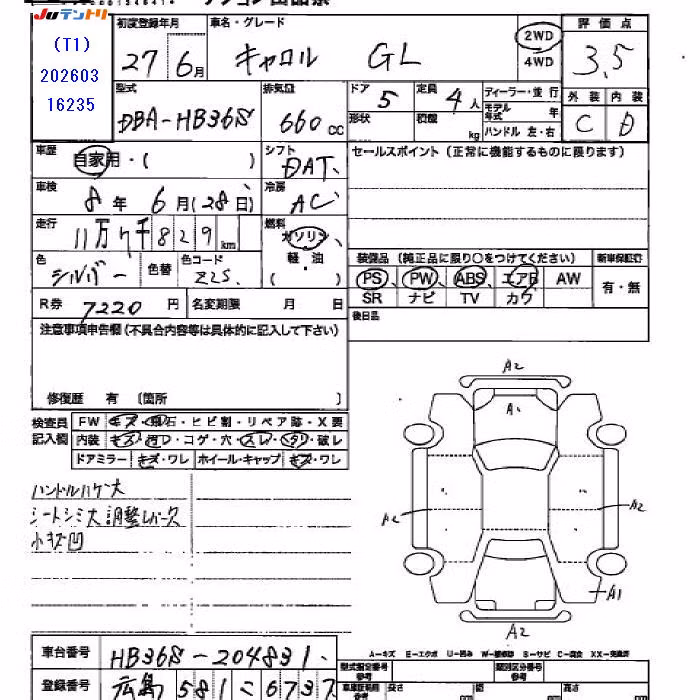 JUテントリ
(T1)
202603
16235
初度登録年月 車名・グレード 評価点
27 6月 キャロル GL 2WD 4WD 3.5
型式 排気量 ドア 5 定員 4人 ディーラー・並行 外装 内装
DBA-HB36S 660cc 形状 積載 kg モデル年式 年 ハンドル 左・右 C D
車歴 自家用・( ) シフト DAT セールスポイント(正常に機能するものに限ります)
車検 8年 6月(28日) 冷房 AC
走行 11万7千829km 燃料 ガソリン 軽・油 ( )
色 シルバー 色替 色コード Z2S 装備品(純正品に限り○をつけてください) 新車保証書
PS PW ABS エアB AW 有・無
SR ナビ TV カワ
R券 7220円 名変期限 月 日 後日品
注意事項申告欄(不具合内容等は具体的に記入して下さい)
修復歴 有 〔箇所 〕
検査員記入欄 FW キズ・飛石・ヒビ割・リペア跡・X要
内装 キズ・汚レ・コゲ・穴・スレ・破レ
ドアミラー キズ・ワレ ホイール・キャップ キズ・ワレ
ハンドルハゲ大
シートシミ大 調整レバースレ
小キズ凹
A2
A1
A2 A2
A1
A2
A-キズ E-エクボ U-凹み W-補修跡 S-サビ C-腐食 XX-交換済
車台番号 HB36S-204831
登録番号 広島 581 こ 6737
型式指定番号 参考 類別区分番号 参考
長さ 幅 高さ